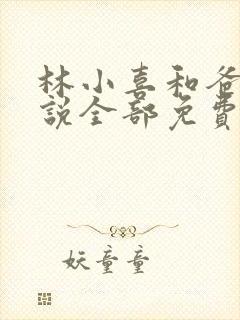 林小喜和爸
說全部免費
妖童童